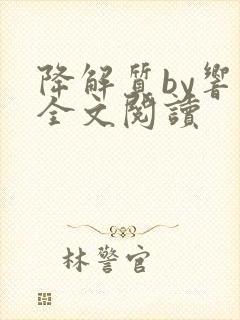 降解質by響
全文閱讀
林警官